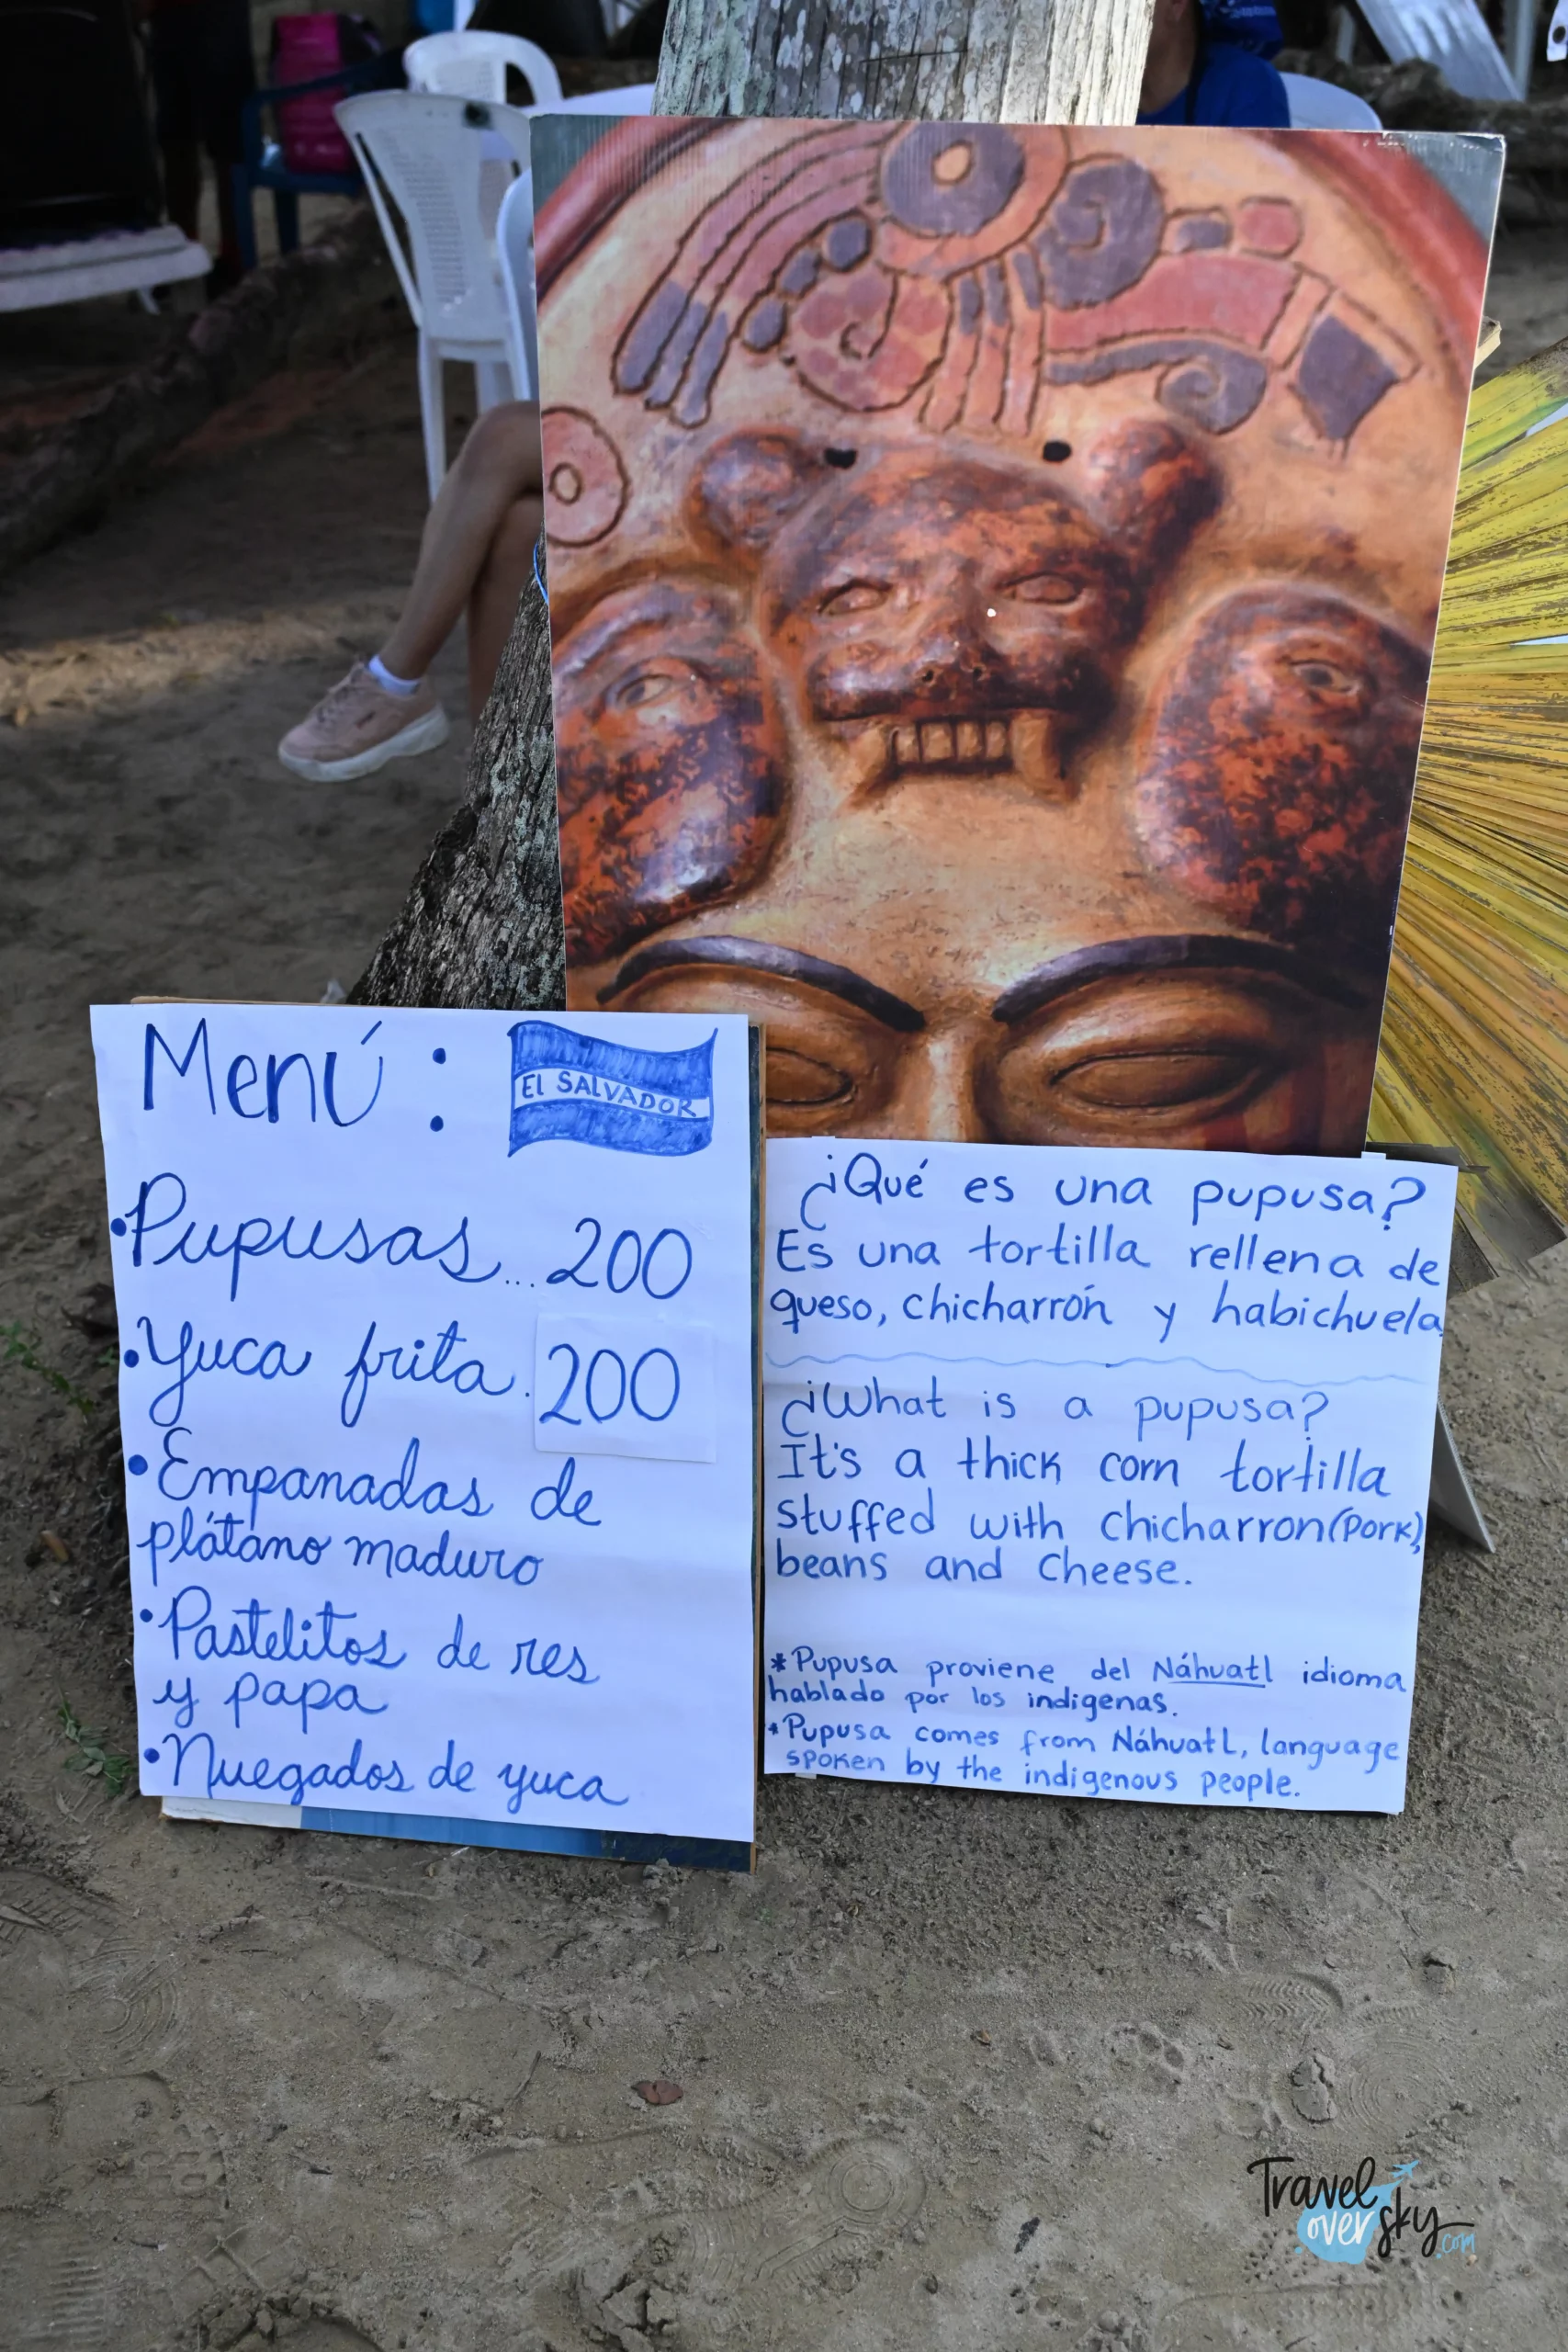 Menú:
EL SALVADOR
•Pupusas...200
•Yuca frita.200
•Empanadas de
plátano maduro
•Pastelitos de res
y papa
•Nuegados de yuca
¿Qué es una pupusa?
Es una tortilla rellena de
queso, chicharrón y habichuela
¿What is a pupusa?
It's a thick corn tortilla
stuffed with chicharron(Pork),
beans and cheese.
*Pupusa proviene del Náhuatl idioma
hablado por los indigenas.
*Pupusa comes from Náhuatl, language
spoken by the indigenous people.
Travel
over sky
.com